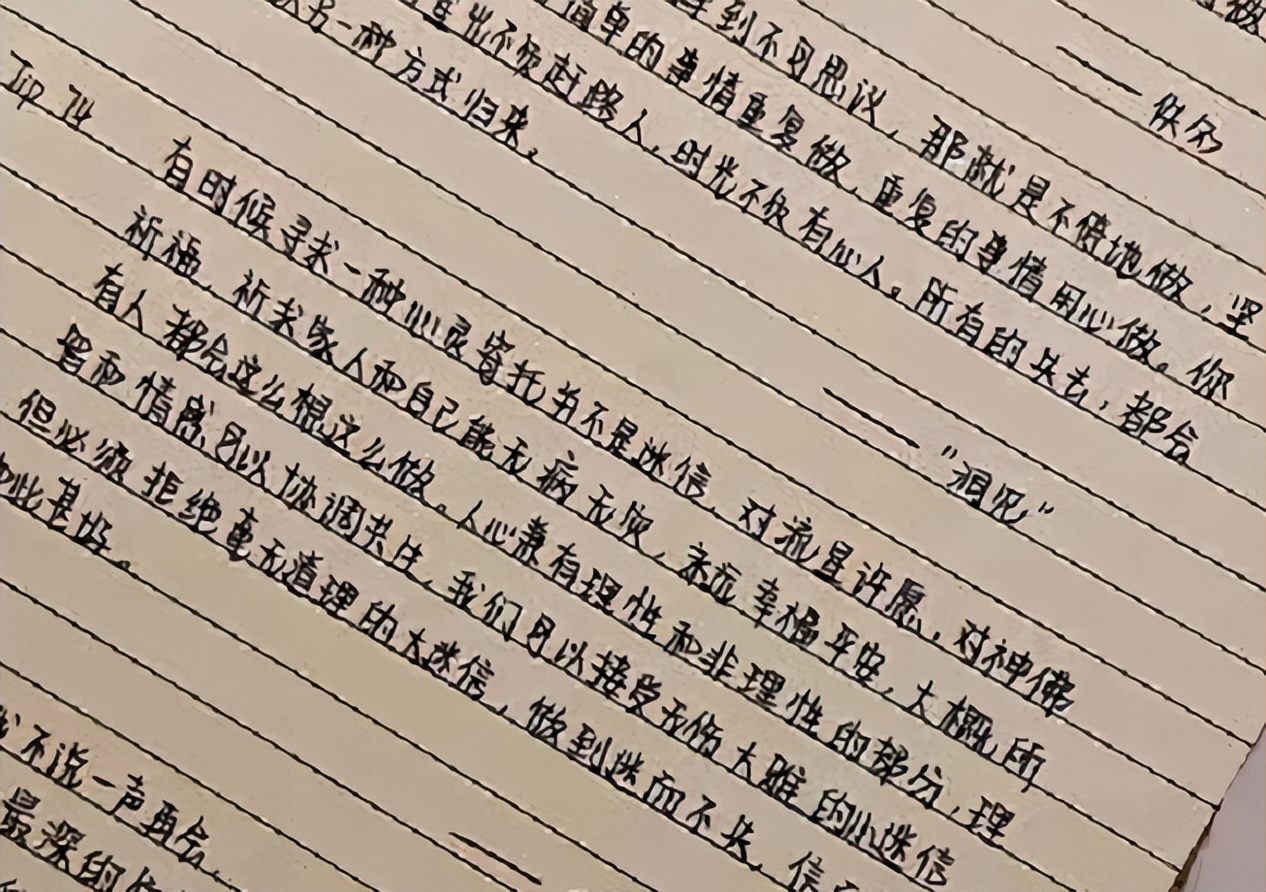 佚名
到不可思议，那就是不停地做，坚
简单的事情重复做，重复的事情用心做。你
不负赶路人，时光不负有心人。所有的失去，都会
另一种方式归来。
—— "洞见"
Tip 74
有时候寻求一种心灵寄托并不是迷信，对流星许愿，对神佛
祈福，祈求家人和自己能无病无灾，永远幸福平安，大概所
有人都会这么想这么做。人心兼有理性和非理性的部分，理
智和情感可以协调共生，我们可以接受无伤大雅的小迷信
但必须拒绝毫无道理的大迷信，做到迷而不失，信
如此甚好。
我不说一声再会，
最深的